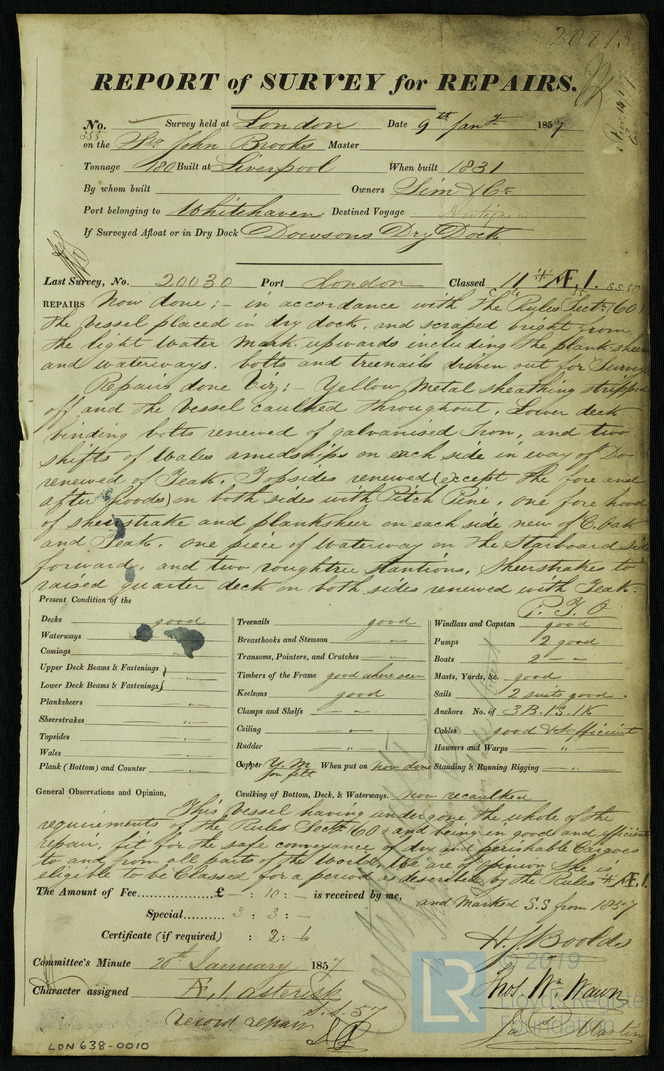 20813
REPORT of SURVEY for REPAIRS.
No. 555 Survey held at London Date 9th Jany 1857
on the Sir John Brooks Master
Tonnage 180 Built at Liverpool When built 1831
By whom built Owners Sim & Co
Port belonging to Whitehaven Destined Voyage
If Surveyed Afloat or in Dry Dock Dowsons Dry Dock
Last Survey, No. 20030 Port London Classed 11 * Æ 1.
REPAIRS Now done; - in accordance with the Rules Sectn 60
the vessel placed in dry dock, and scraped bright from
the light water mark upwards including the planksheer
and waterways. bolts and treenails driven out for Survey
Repairs done Viz; - Yellow Metal sheathing stripped
off and the Vessel caulked throughout. Lower deck
binding bolts renewed of galvanised Iron, and two
shifts of Wales amidships on each side in way of Do
renewed of Teak. Topsides renewed (except the fore and
after hoods) on both sides with Pitch Pine, one fore hood
of sheerstrake and planksheer on each side new of E. Oak
and Teak, one piece of Waterway on the Starboard side
forward, and two roughtree stantions. Sheerstrakes to
raised quarter deck on both sides renewed with Teak.
P.T.O
Present Condition of the
Decks good Treenails good Windlass and Capstan good
Waterways Breasthooks and Stemson " Pumps 2 good
Comings " Transoms, Pointers, and Crutches " Boats 2 "
Upper Deck Beams & Fastenings " Timbers of the Frame good where seen Masts, Yards, &c. good
Lower Deck Beams & Fastenings Keelsons good Sails 2 suits good
Planksheers " Clamps and Shelfs " Anchors No. of 3 B. 1 S. 1 K
Sheerstrakes " Ceiling " Cables good & sufficient
Topsides " Rudder " Hawsers and Warps "
Wales " Copper Y. M. on felt When put on now done Standing & Running Rigging "
Plank (Bottom) and Counter "
General Observations and Opinion, Caulking of Bottom, Deck, & Waterways. now recaulked
This Vessel having undergone the whole of the
requirements of the Rules Sectn 60, and being in good and efficient
repair, fit for the safe conveyance of dry and perishable Cargoes
to and from all parts of the World, We are of opinion She is
eligible to be Classed for a period as described by the Rules * Æ 1.
The Amount of Fee £ - : 10 : - is received by me, and Marked S.S from 1857
Special 3 : 3 : -
Certificate (if required) : 2 : 6
H. J. Boolds
Committee's Minute 20th January 1857
Thos. Wm Wawn
Character assigned Æ 1 asterisk
S.S. 57
record repairs
Martin
LON 638-0010
© 2019
Lloyd's Register
Foundation